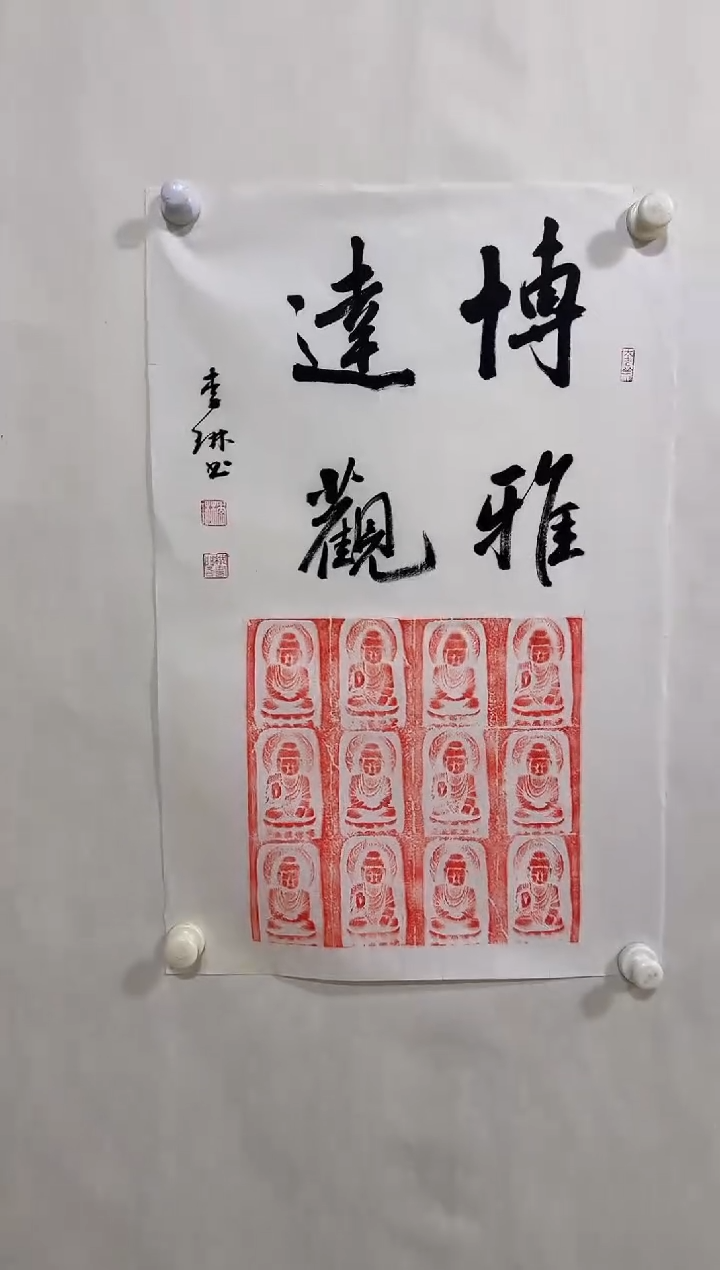 博雅
達觀
李琳书